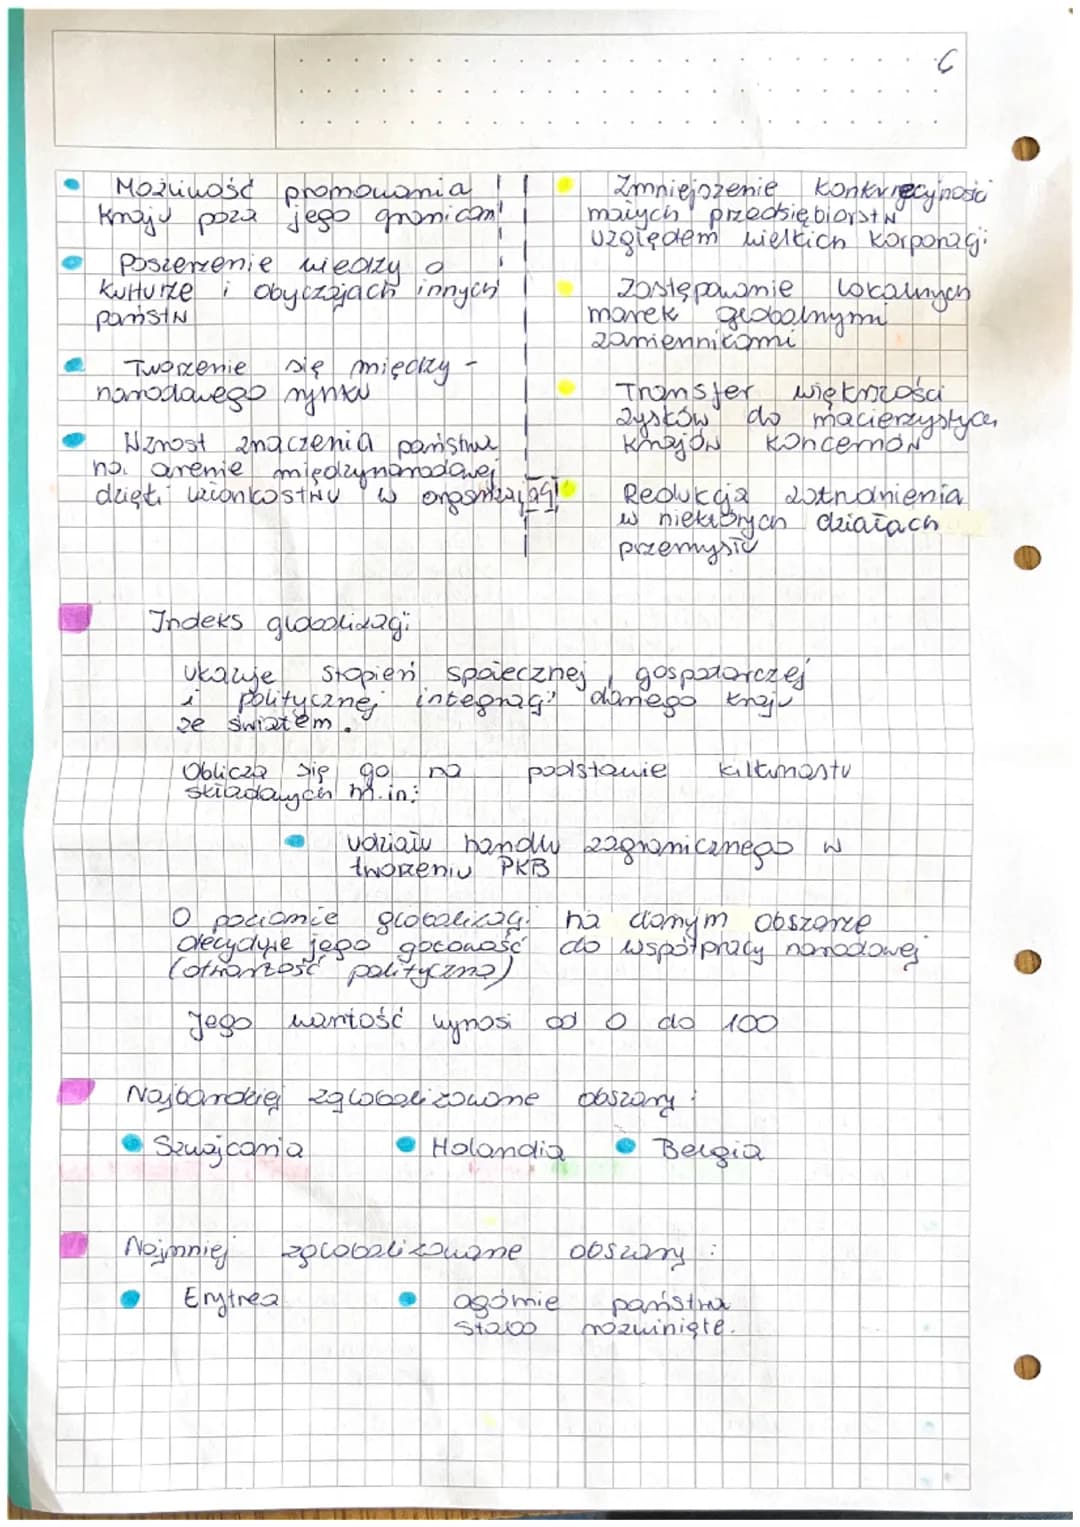 6
Możliwość promowania
kraju poza jego granicami
Poszerzenie wiedzy o
kulturze i obyczajach innych
państw
Tworzenie się między -
narodowego rynku
Wzrost znaczenia państwa
na arenie międzynarodowej
dzięki członkostwu w organizacji
Zmniejszenie konkurecyjności
małych przedsiębiorstw
względem wielkich korporacji
Zastępowanie lokalnych
marek globalnymi
zamiennikami
Transfer większości
zysków do macierzystych
krajów koncernów
Redukcja zatrudnienia
w niektórych działach
przemysłu
Indeks globalizacji
ukazuje stopień społecznej, gospodarczej
i politycznej integracji danego kraju
ze światem.
Oblicza się go na podstawie kilkunastu
składowych m.in:
udziału handlu zagranicznego w
tworzeniu PKB
O poziomie globalizacji na danym obszarze
decyduje jego gotowość do współpracy narodowej
(otwartość polityczna)
Jego wartość wynosi od 0 do 100
Najbardziej zglobalizowane obszary:
Szwajcaria Holandia Belgia
Najmniej zglobalizowane obszary:
Erytrea ogólnie państwa
słabo rozwinięte.